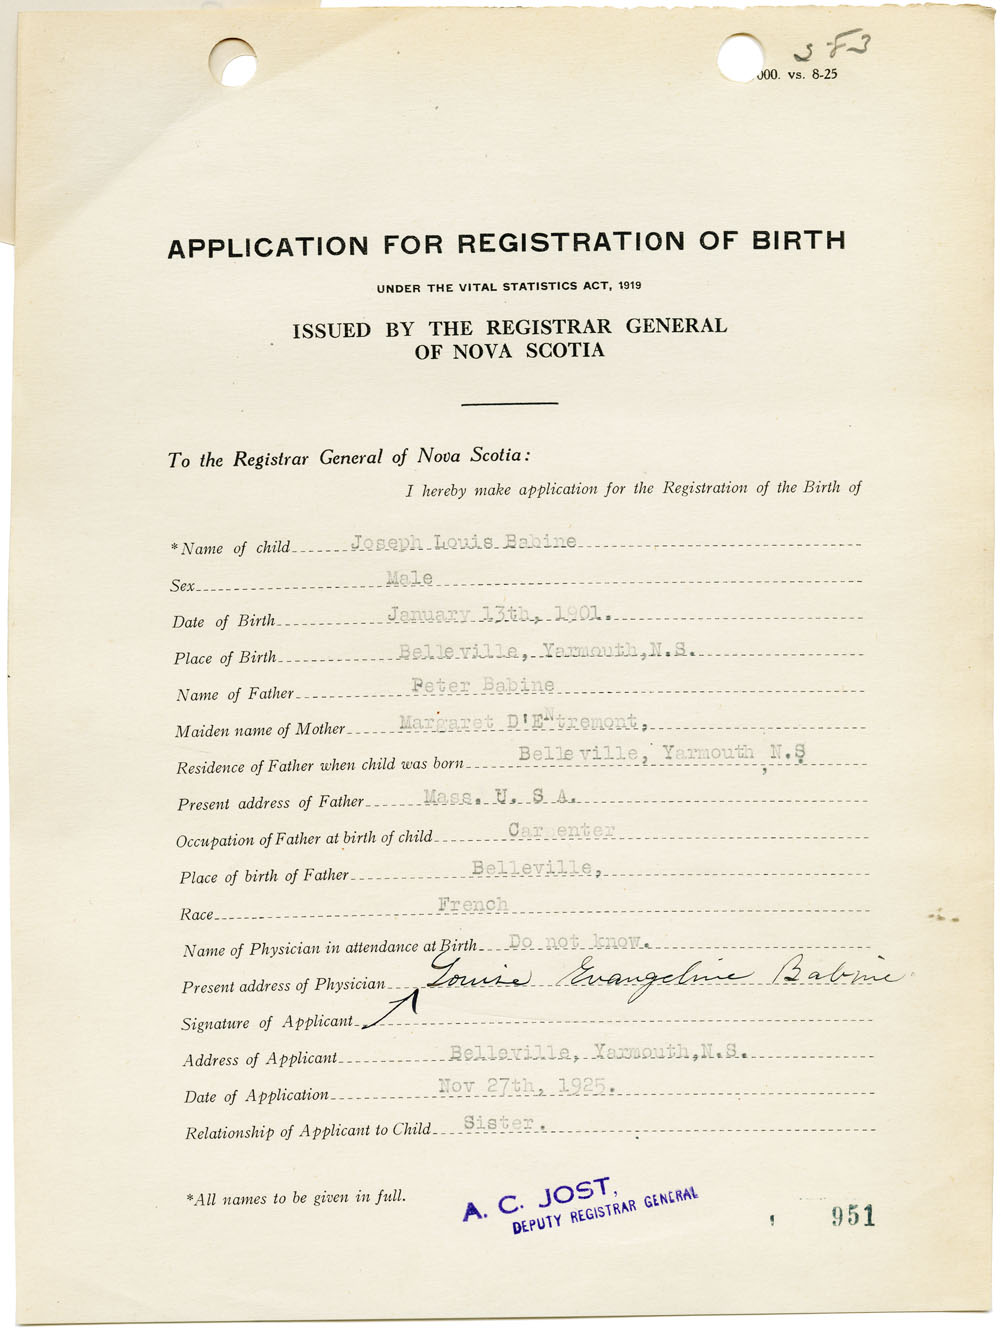 383
000. vs. 8-25
APPLICATION FOR REGISTRATION OF BIRTH
UNDER THE VITAL STATISTICS ACT, 1919
ISSUED BY THE REGISTRAR GENERAL
OF NOVA SCOTIA
To the Registrar General of Nova Scotia:
I hereby make application for the Registration of the Birth of
*Name of child Joseph Louis Babine
Sex Male
Date of Birth January 13th, 1901.
Place of Birth Belleville, Yarmouth,N.S.
Name of Father Peter Babine
Maiden name of Mother Margaret D'Entremont,
Residence of Father when child was born Belleville, Yarmouth, N.S
Present address of Father Mass. U. S A.
Occupation of Father at birth of child Carpenter
Place of birth of Father Belleville,
Race French
Name of Physician in attendance at Birth Do not know.
Present address of Physician Louise Evangeline Babine
Signature of Applicant
Address of Applicant Belleville, Yarmouth,N.S.
Date of Application Nov 27th, 1925.
Relationship of Applicant to Child Sister.
*All names to be given in full.
A. C. JOST,
DEPUTY REGISTRAR GENERAL
951